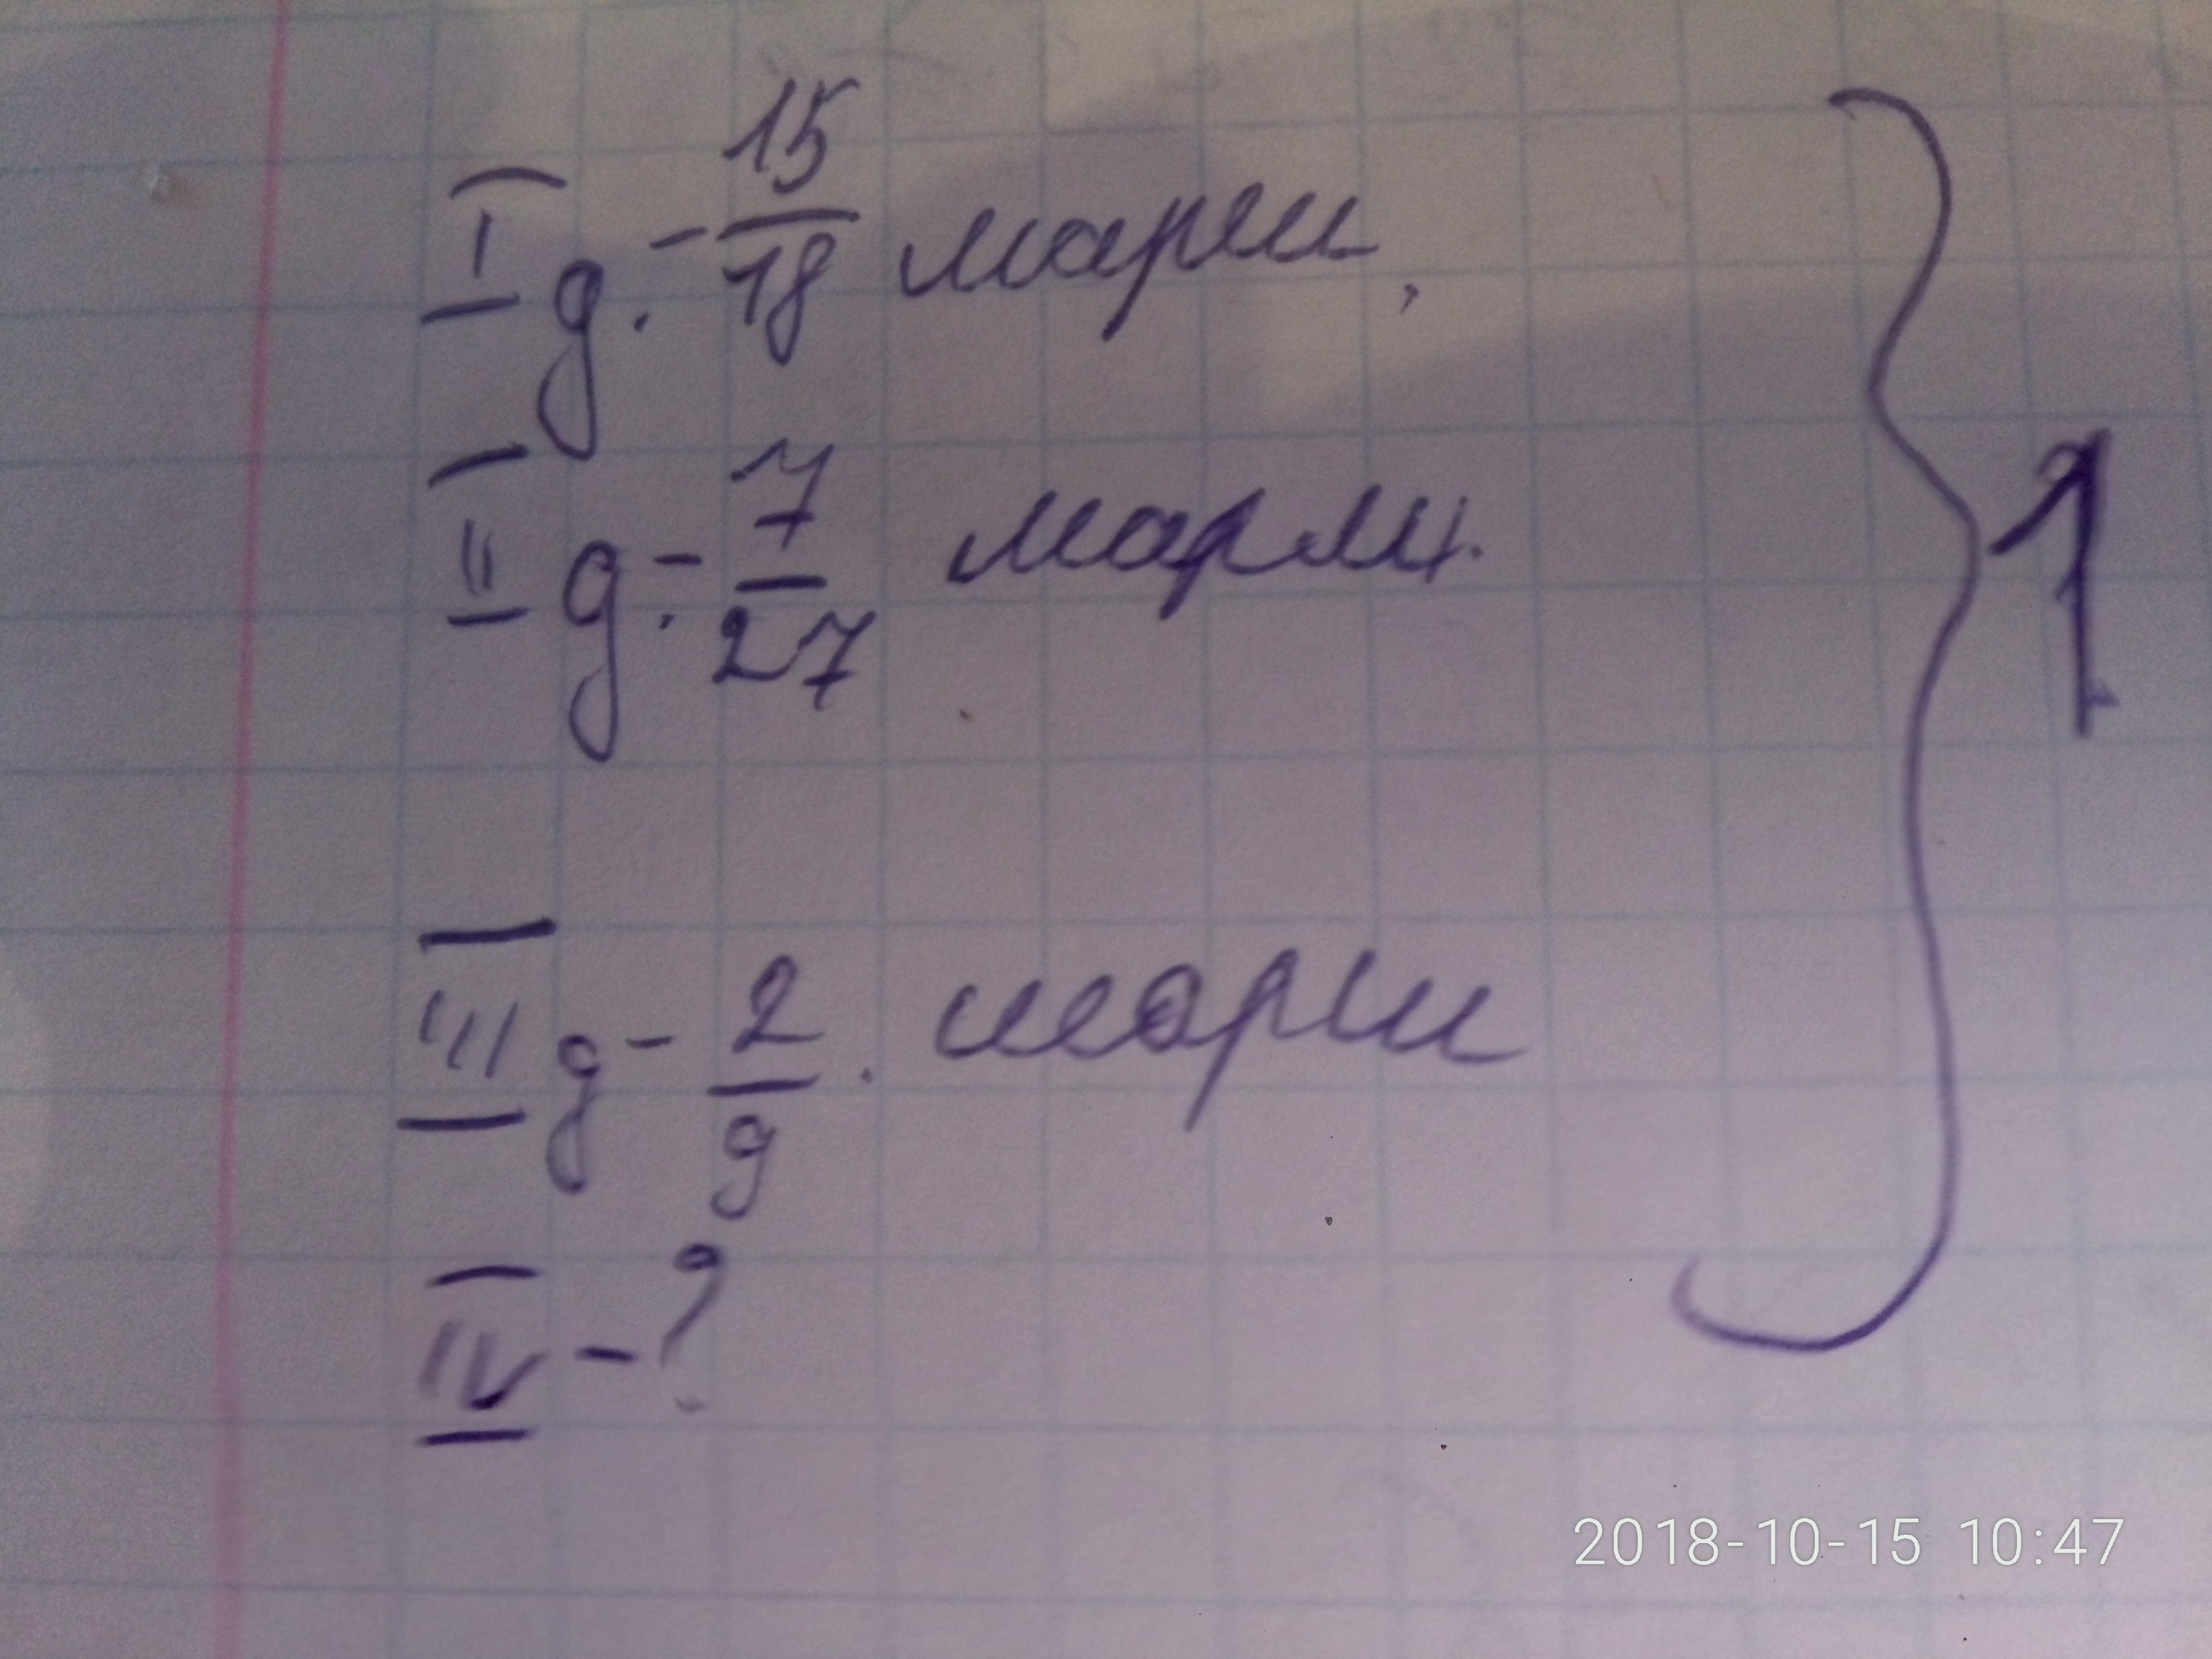 I д. - 15/18 марш,
II д. - 7/27 марш.
III д - 2/9. марш
IV - ?
1
2018-10-15 10:47